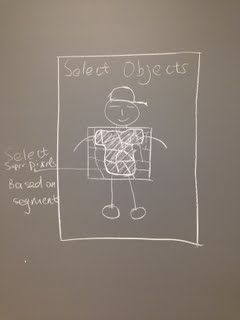 Select Objects
Select
Super Pixels
Based on
segment